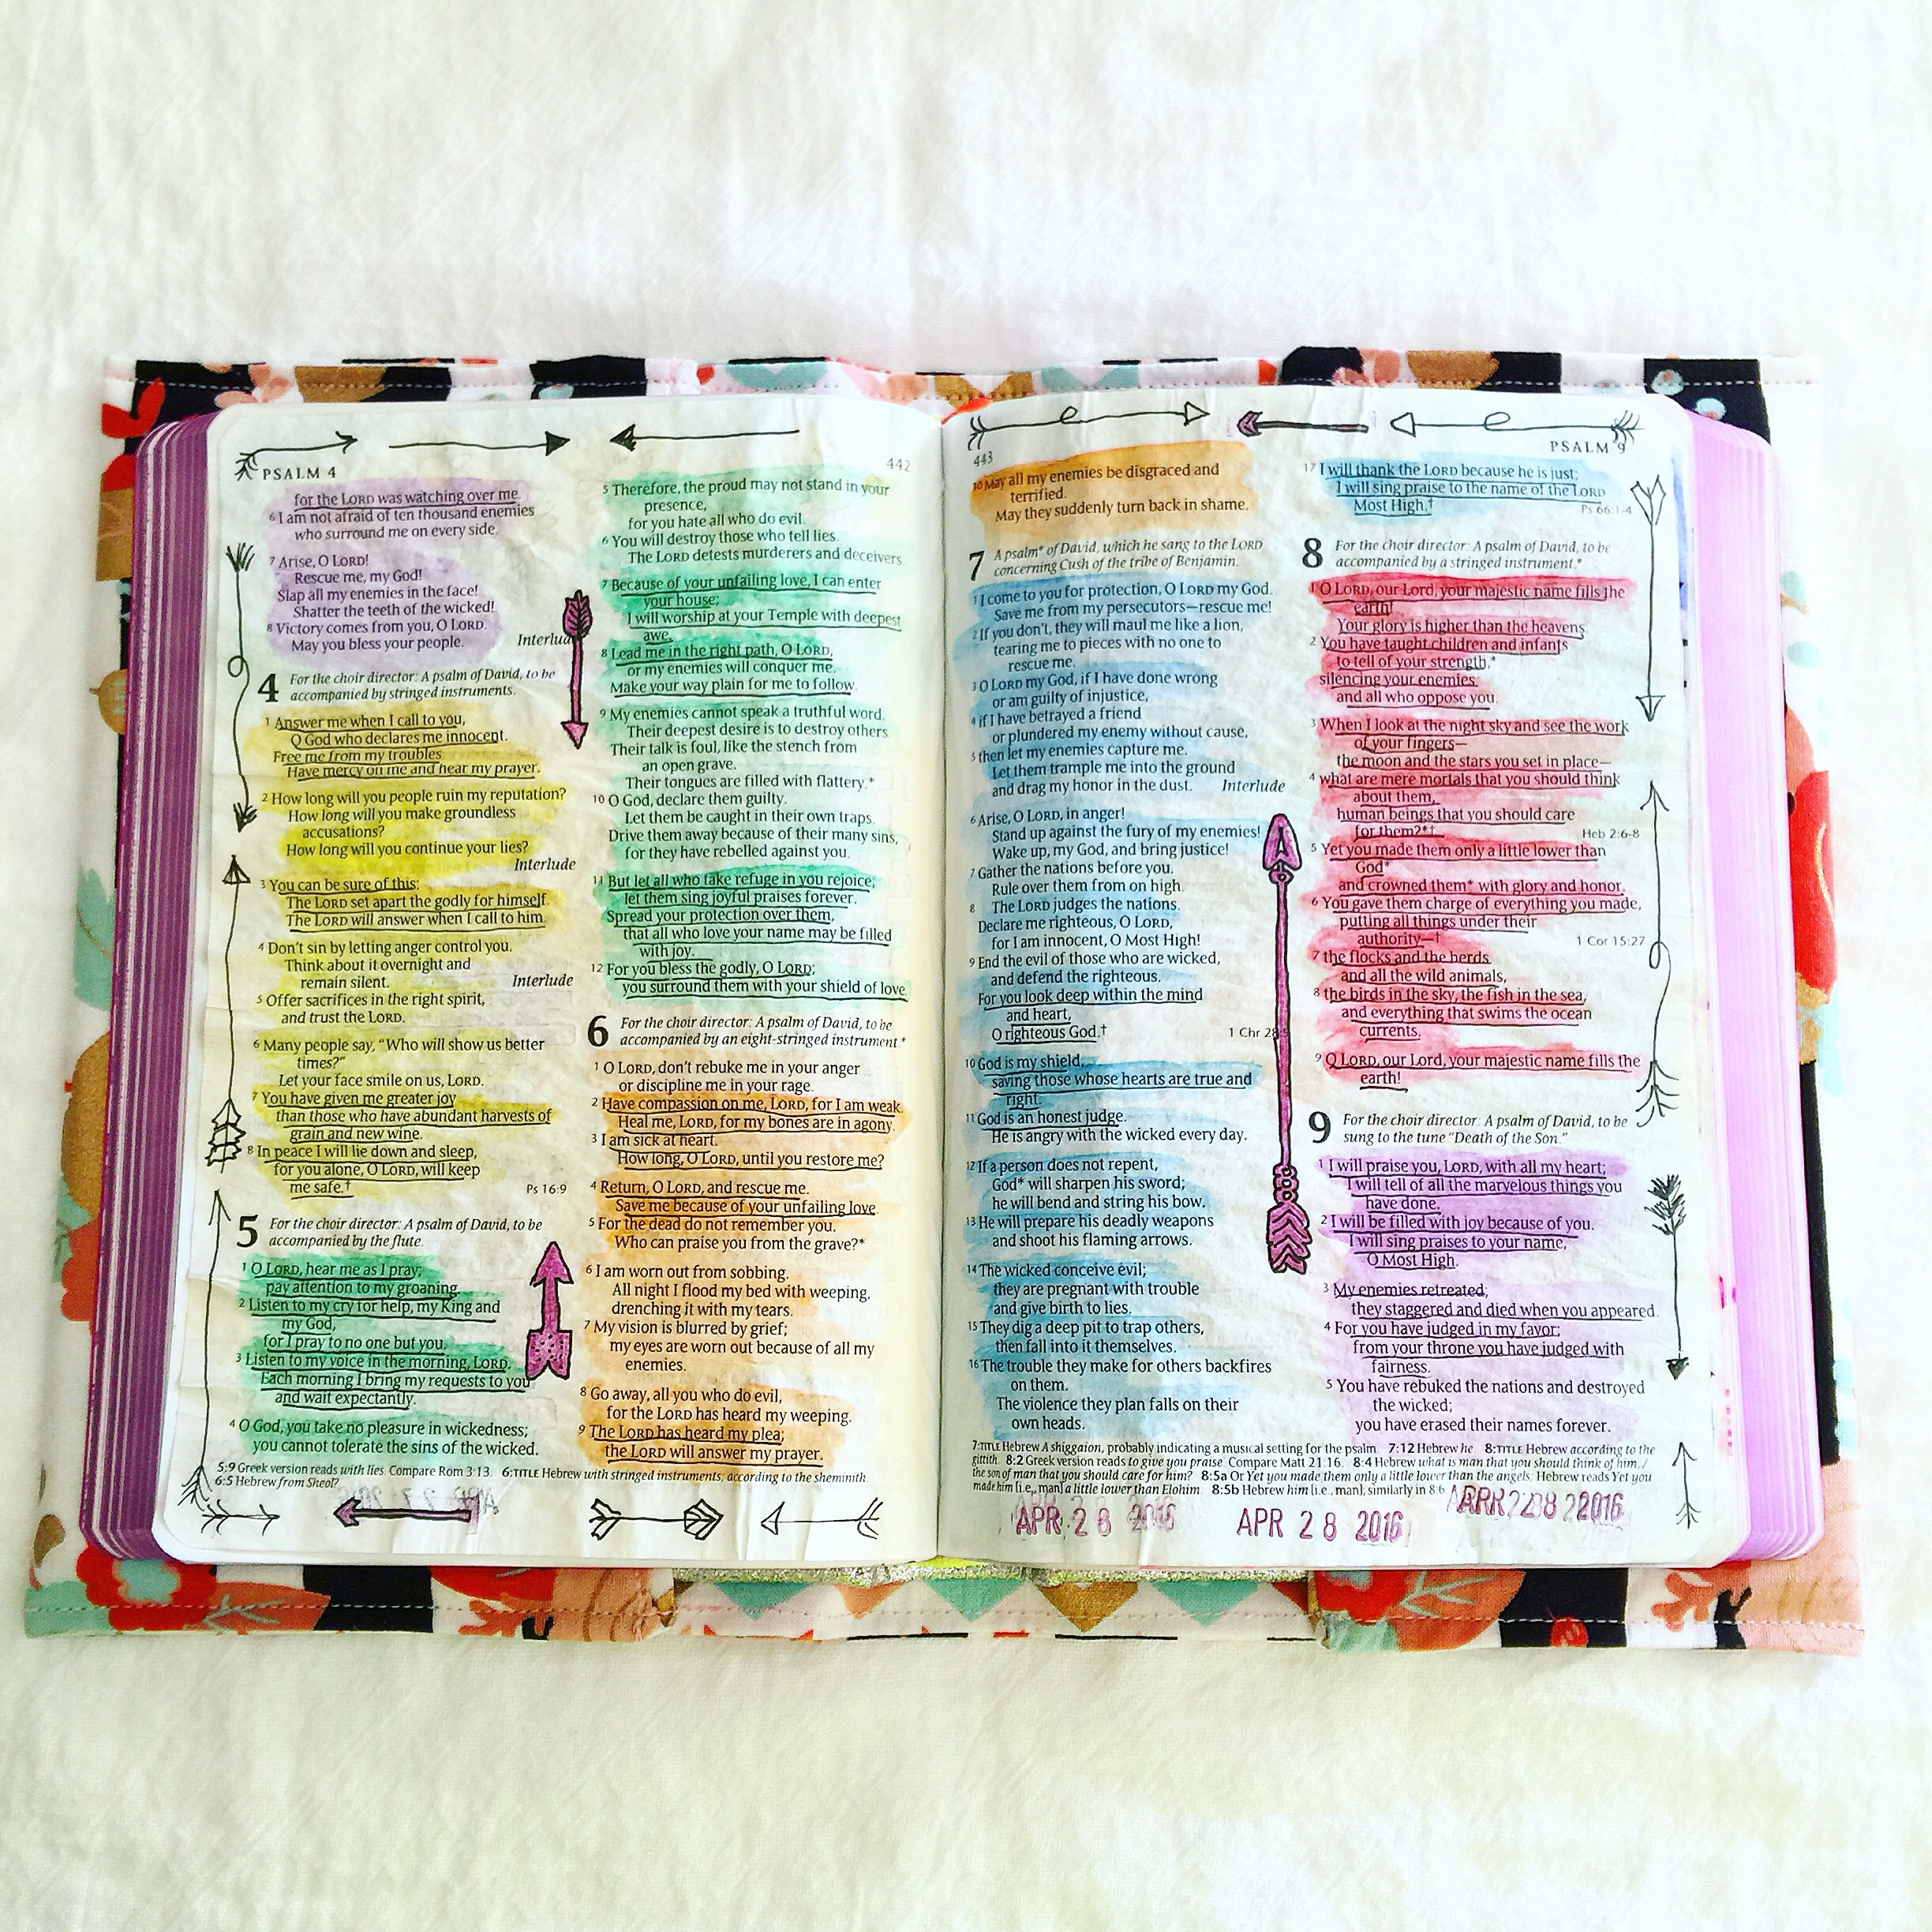 PSALM 4
442
for the LORD was watching over me.
6 I am not afraid of ten thousand enemies
who surround me on every side.
7 Arise, O LORD!
Rescue me, my God!
Slap all my enemies in the face!
Shatter the teeth of the wicked!
8 Victory comes from you, O LORD.
May you bless your people.
Interlude
4 For the choir director: A psalm of David, to be
accompanied by stringed instruments.
1 Answer me when I call to you,
O God who declares me innocent.
Free me from my troubles.
Have mercy on me and hear my prayer.
2 How long will you people ruin my reputation?
How long will you make groundless
accusations?
How long will you continue your lies?
Interlude
3 You can be sure of this:
The LORD set apart the godly for himself.
The LORD will answer when I call to him.
4 Don't sin by letting anger control you.
Think about it overnight and
remain silent.
Interlude
5 Offer sacrifices in the right spirit,
and trust the LORD.
6 Many people say, "Who will show us better
times?"
Let your face smile on us, LORD.
7 You have given me greater joy
than those who have abundant harvests of
grain and new wine.
8 In peace I will lie down and sleep,
for you alone, O LORD, will keep
me safe.†
Ps 16:9
5 For the choir director: A psalm of David, to be
accompanied by the flute.
1 O LORD, hear me as I pray;
pay attention to my groaning.
2 Listen to my cry for help, my King and
my God,
for I pray to no one but you.
3 Listen to my voice in the morning, LORD.
Each morning I bring my requests to you
and wait expectantly.
4 O God, you take no pleasure in wickedness;
you cannot tolerate the sins of the wicked.
5 Therefore, the proud may not stand in your
presence,
for you hate all who do evil.
6 You will destroy those who tell lies.
The LORD detests murderers and deceivers.
7 Because of your unfailing love, I can enter
your house;
I will worship at your Temple with deepest
awe.
8 Lead me in the right path, O LORD,
or my enemies will conquer me.
Make your way plain for me to follow.
9 My enemies cannot speak a truthful word.
Their deepest desire is to destroy others.
Their talk is foul, like the stench from
an open grave.
Their tongues are filled with flattery.*
10 O God, declare them guilty.
Let them be caught in their own traps.
Drive them away because of their many sins,
for they have rebelled against you.
11 But let all who take refuge in you rejoice;
let them sing joyful praises forever.
Spread your protection over them,
that all who love your name may be filled
with joy.
12 For you bless the godly, O LORD;
you surround them with your shield of love.
6 For the choir director: A psalm of David, to be
accompanied by an eight-stringed instrument.*
1 O LORD, don't rebuke me in your anger
or discipline me in your rage.
2 Have compassion on me, LORD, for I am weak.
Heal me, LORD, for my bones are in agony.
3 I am sick at heart.
How long, O LORD, until you restore me?
4 Return, O LORD, and rescue me.
Save me because of your unfailing love.
5 For the dead do not remember you.
Who can praise you from the grave?*
6 I am worn out from sobbing.
All night I flood my bed with weeping,
drenching it with my tears.
7 My vision is blurred by grief;
my eyes are worn out because of all my
enemies.
8 Go away, all you who do evil,
for the LORD has heard my weeping.
9 The LORD has heard my plea;
the LORD will answer my prayer.
5:9 Greek version reads with lies. Compare Rom 3:13. 6:TITLE Hebrew with stringed instruments; according to the sheminith.
6:5 Hebrew from Sheol?
443
PSALM 9
10 May all my enemies be disgraced and
terrified.
May they suddenly turn back in shame.
7 A psalm* of David, which he sang to the LORD
concerning Cush of the tribe of Benjamin.
1 I come to you for protection, O LORD my God.
Save me from my persecutors—rescue me!
2 If you don't, they will maul me like a lion,
tearing me to pieces with no one to
rescue me.
3 O LORD my God, if I have done wrong
or am guilty of injustice,
4 if I have betrayed a friend
or plundered my enemy without cause,
5 then let my enemies capture me.
Let them trample me into the ground
and drag my honor in the dust.
Interlude
6 Arise, O LORD, in anger!
Stand up against the fury of my enemies!
Wake up, my God, and bring justice!
7 Gather the nations before you.
Rule over them from on high.
8 The LORD judges the nations.
Declare me righteous, O LORD,
for I am innocent, O Most High!
9 End the evil of those who are wicked,
and defend the righteous.
For you look deep within the mind
and heart,
O righteous God.†
1 Chr 28:9
10 God is my shield,
saving those whose hearts are true and
right.
11 God is an honest judge.
He is angry with the wicked every day.
12 If a person does not repent,
God* will sharpen his sword;
he will bend and string his bow.
13 He will prepare his deadly weapons
and shoot his flaming arrows.
14 The wicked conceive evil;
they are pregnant with trouble
and give birth to lies.
15 They dig a deep pit to trap others,
then fall into it themselves.
16 The trouble they make for others backfires
on them.
The violence they plan falls on their
own heads.
17 I will thank the LORD because he is just;
I will sing praise to the name of the LORD
Most High.†
Ps 66:1-4
8 For the choir director: A psalm of David, to be
accompanied by a stringed instrument.*
1 O LORD, our Lord, your majestic name fills the
earth!
Your glory is higher than the heavens.
2 You have taught children and infants
to tell of your strength,*
silencing your enemies
and all who oppose you.
3 When I look at the night sky and see the work
of your fingers—
the moon and the stars you set in place—
4 what are mere mortals that you should think
about them,
human beings that you should care
for them?*†
Heb 2:6-8
5 Yet you made them only a little lower than
God*
and crowned them* with glory and honor.
6 You gave them charge of everything you made,
putting all things under their
authority—†
1 Cor 15:27
7 the flocks and the herds
and all the wild animals,
8 the birds in the sky, the fish in the sea,
and everything that swims the ocean
currents.
9 O LORD, our Lord, your majestic name fills the
earth!
9 For the choir director: A psalm of David, to be
sung to the tune "Death of the Son."
1 I will praise you, LORD, with all my heart;
I will tell of all the marvelous things you
have done.
2 I will be filled with joy because of you.
I will sing praises to your name,
O Most High.
3 My enemies retreated;
they staggered and died when you appeared.
4 For you have judged in my favor;
from your throne you have judged with
fairness.
5 You have rebuked the nations and destroyed
the wicked;
you have erased their names forever.
7:TITLE Hebrew A shiggaion, probably indicating a musical setting for the psalm. 7:12 Hebrew he. 8:TITLE Hebrew according to the
gittith. 8:2 Greek version reads to give you praise. Compare Matt 21:16. 8:4 Hebrew what is man that you should think of him, /
the son of man that you should care for him? 8:5a Or Yet you made them only a little lower than the angels; Hebrew reads Yet you
made him [i.e., man] a little lower than Elohim. 8:5b Hebrew him [i.e., man]; similarly in 8:6.
APR 28 2016
APR 28 2016
APR 28 2016